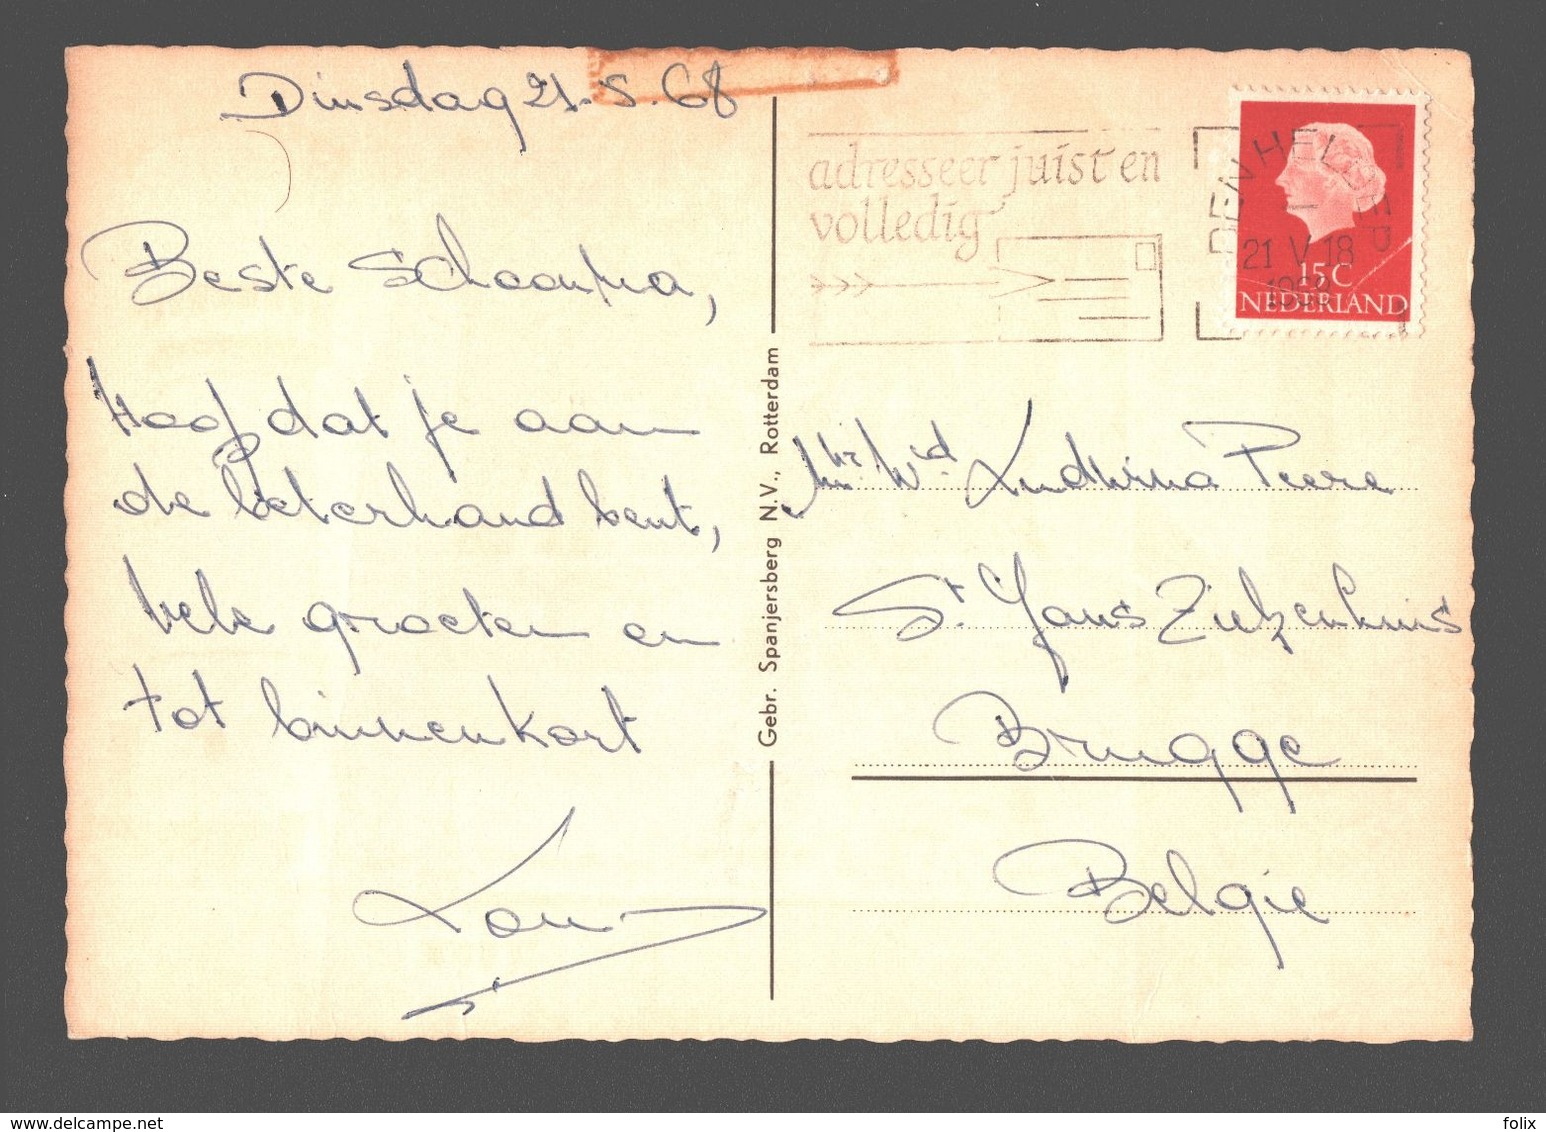 Dinsdag 21.5.68
Beste Schoonma,
Hoop dat je aan
de beterhand bent,
vele groeten en
tot binnenkort
Lou
Gebr. Spanjersberg N.V., Rotterdam
adresseer juist en
volledig
DEN HELDER
21 V 18
1968
15 C
NEDERLAND
Wid Ludwina Peere
St Jans Ziekenhuis
Brugge
België
folix